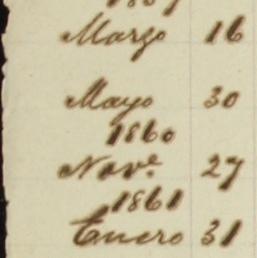 Marzo 16
Mayo 30
1860
Nov.e 27
1861
Enero 31